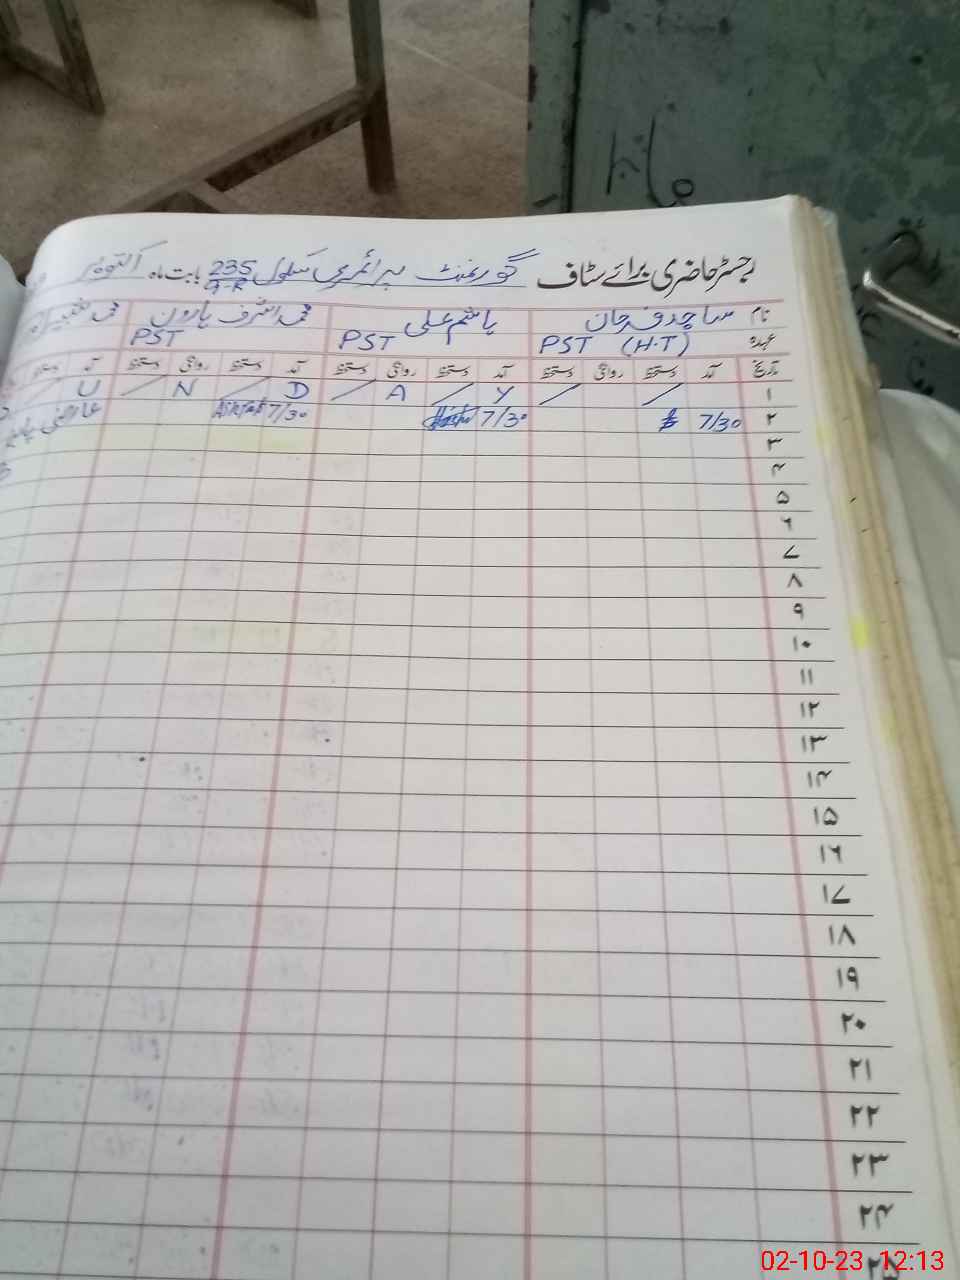 رجسٹر حاضری برائے سٹاف گورنمنٹ پرائمری سکول 235/9-R بابت ماہ اکتوبر
نام ساجدہ خان ہاشم علی محمد اشرف ہارون محمد
عہدہ PST (H.T) PST PST
تاریخ آمد دستخط روانگی دستخط آمد دستخط روانگی دستخط آمد دستخط روانگی دستخط آمد دستخط
۱ Y A D N U
۲ 7/30 7/30 7/30 Ashraf عارضی
۳
۴
۵
۶
۷
۸
۹
۱۰
۱۱
۱۲
۱۳
۱۴
۱۵
۱۶
۱۷
۱۸
۱۹
۲۰
۲۱
۲۲
۲۳
۲۴
۲۵
02-10-23 12:13